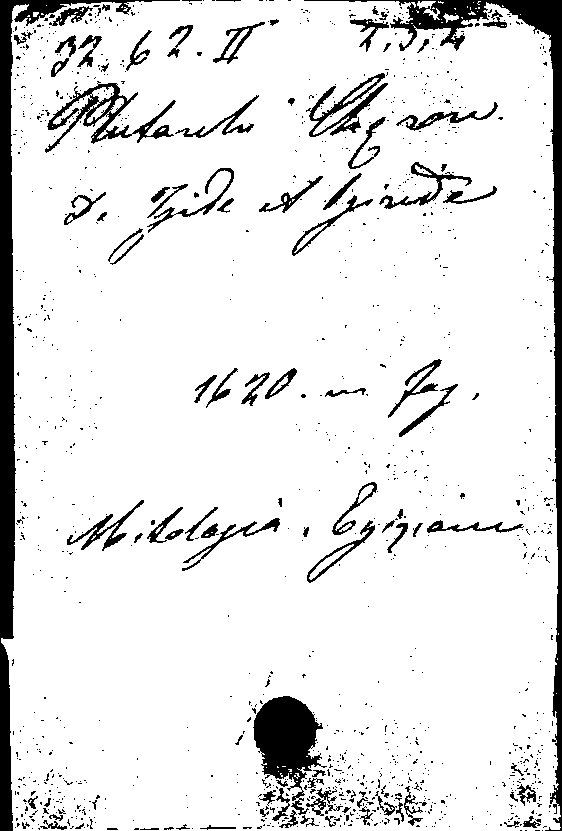 32. 62. II 2, 3, 4
Plutarchi Chæron.
D. Iside et Osiride
1620. in fog.
Mitologia. Egiziani